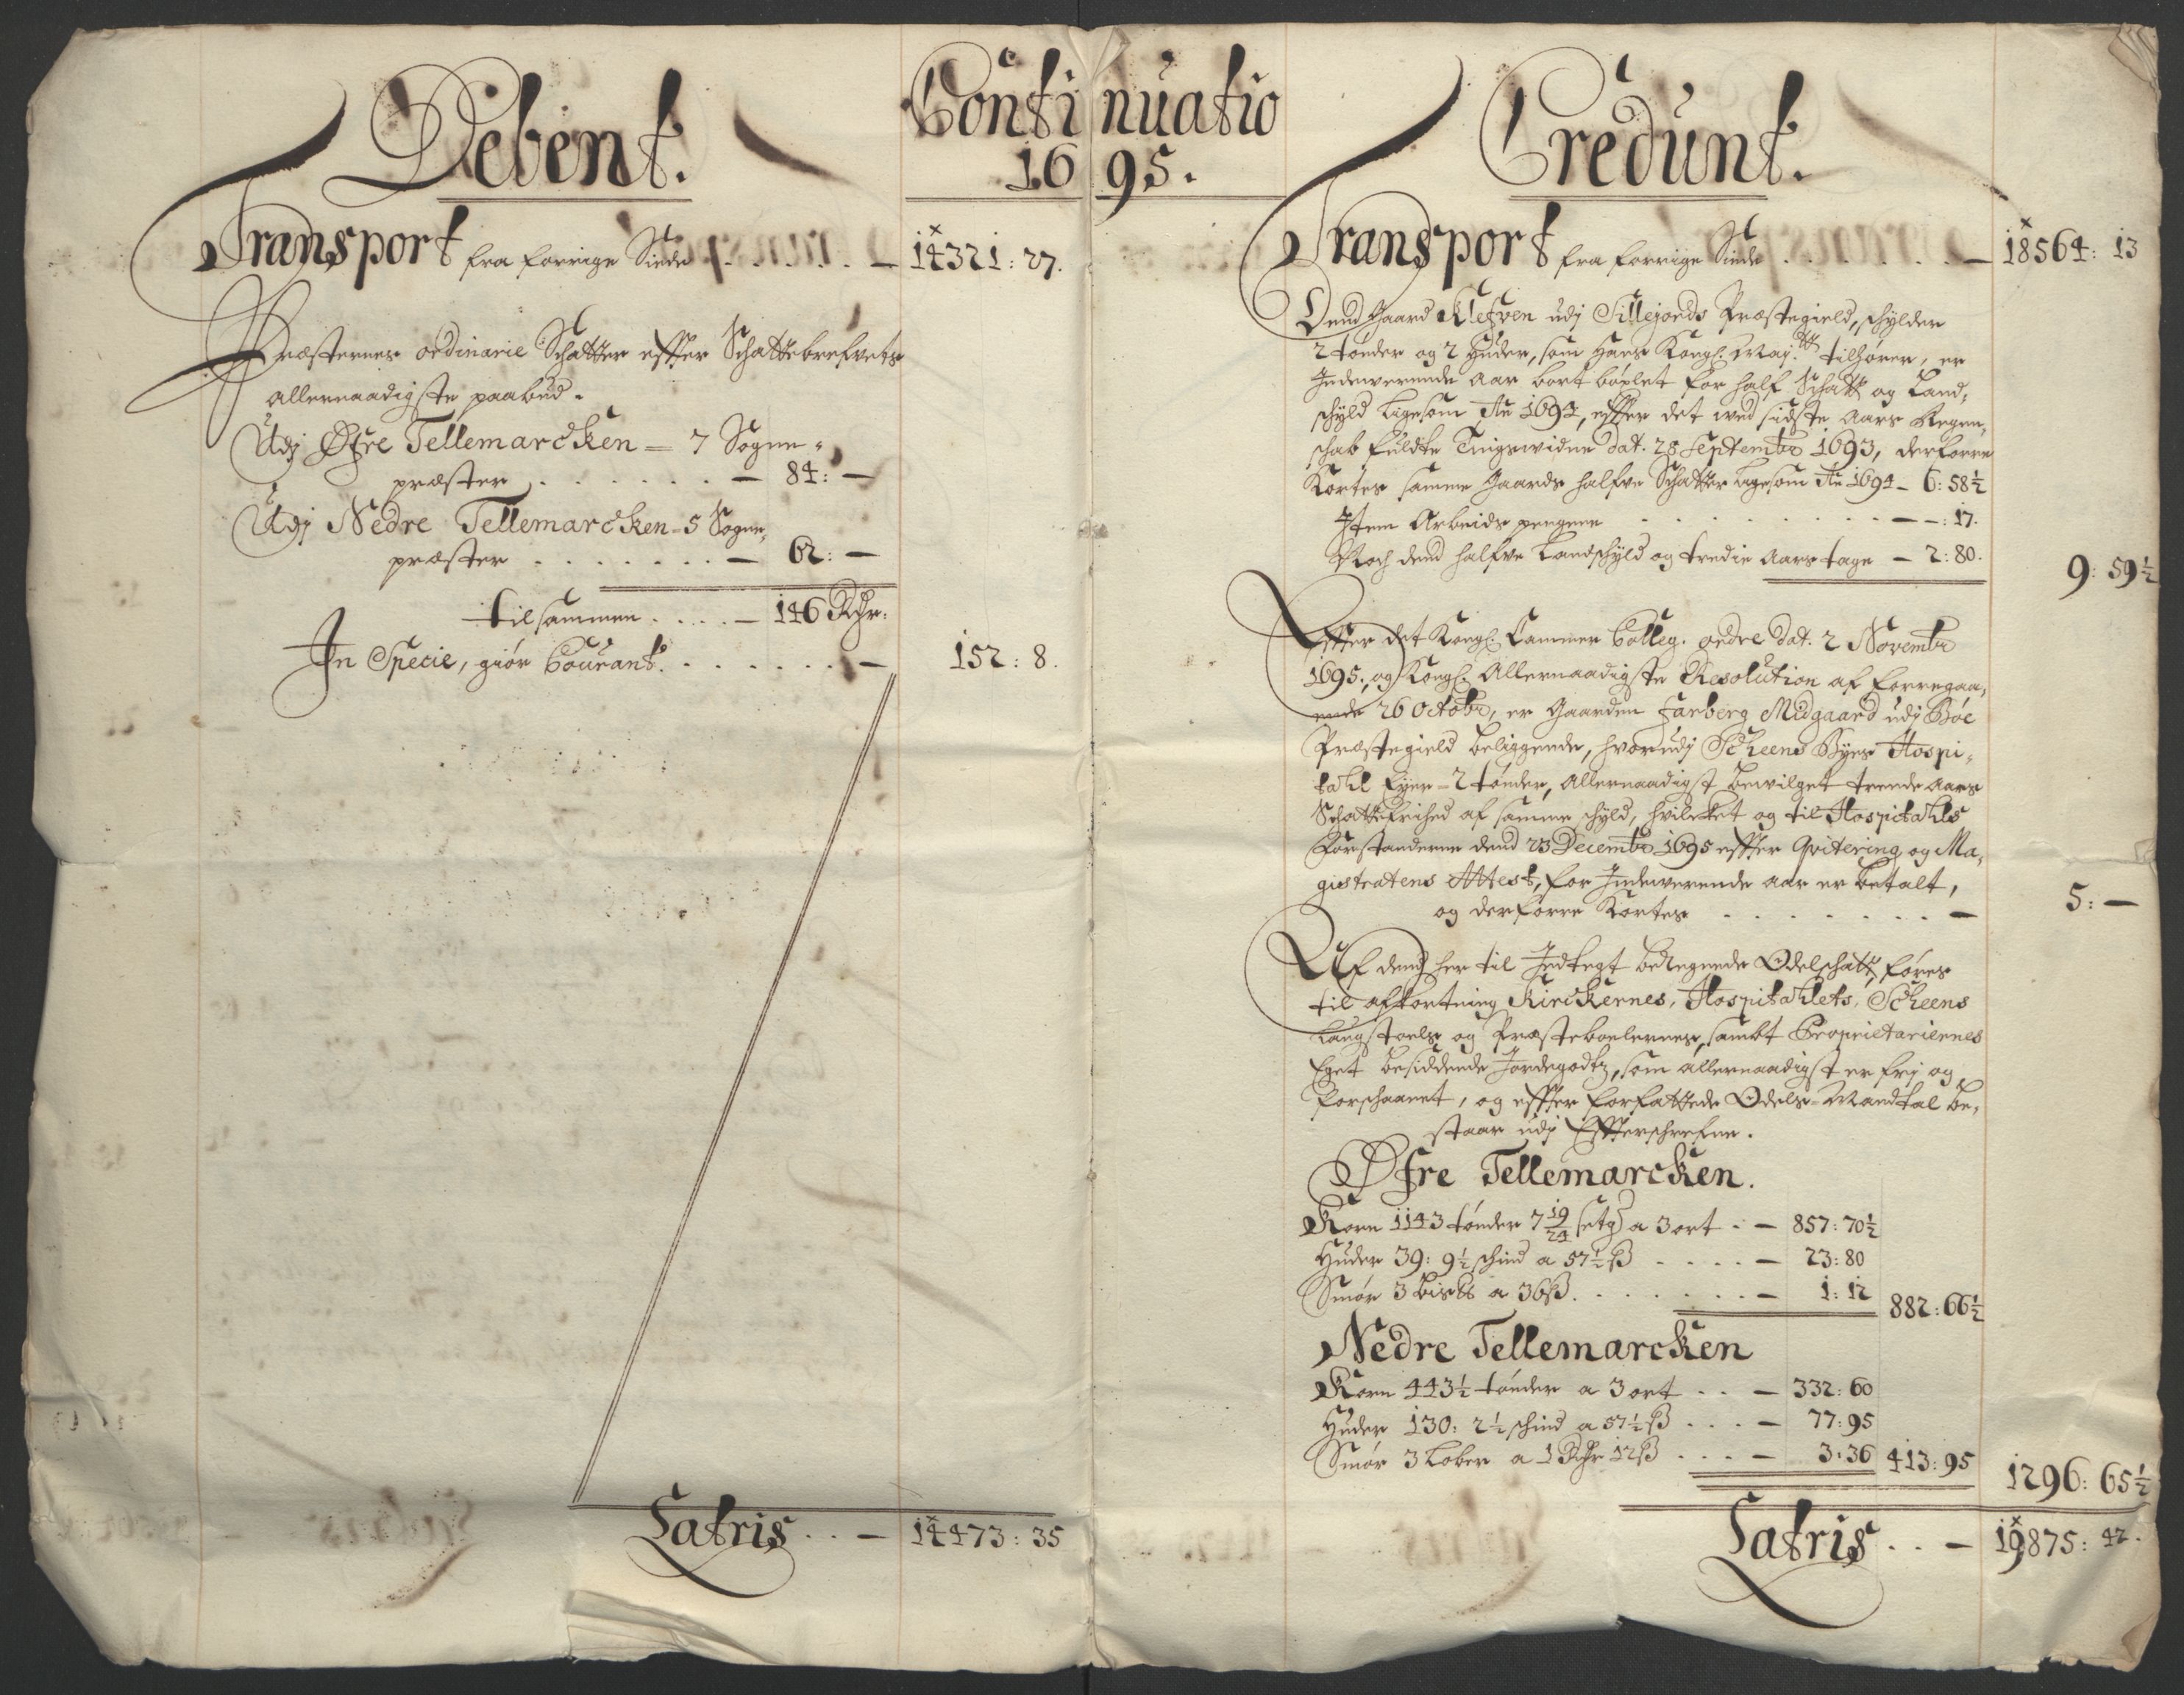 Debent.
Continuatio
1695.
Transport fra forrige Siide . . . . . — 14321: 27.
Præsternes ordinarie Schatter effter Schattebrefvets
allernaadigste paabud.
Udj Øfre Tellemarcken = 7 Sogne-
præster . . . . . . — 84: —
Udj Nedre Tellemarcken - 5 Sogne-
præster . . . . . . . — 62: —
tilsammen . . . . — 146 Rdr.
In Specie, giør Courant. . . . . . . — 152: 8.
Latris . . — 14473: 35
Credunt.
Transport fra forrige Siide . . . . . . . — 18564: 13
Dend Gaard Klefven udj Sillejords Præstegield, schylder
2 tønder og 2 Huder, som Hans Kongl. May.tt tilhører, er
Indeverende Aar bort bøxlet for half Schatt og Land-
schyld ligesom Ao 1693, effter det wed sidste Aars Regen-
schab fuldte Tingswidne dat. 28 Septembr 1693, derforre
Kortes samme Gaards halfve Schatter ligesom Ao 1694 - 6: 58½
Item Arbeids pengene . . . . . . . — -: 17.
Noch dend halfve Landschyld og tredie Aars tage — 2: 80.
9: 59½
Effter det Kongl. Cammer Colleg. ordre dat. 2 Novembr
1695, og Kongl. Allernaadigste Resolution af forregaa-
ende 26 Octobr, er Gaarden Farberg Midgaard udj Bøe
Præstegield beliggende, hvorudj Scheens Byes Hospi-
tahl Eyer - 2 tønder, Allernaadigst bevilget trende Aars
Schattefrihed af samme schyld, hvilket og til Hospitahls
Forstanderne dend 23 Decembr 1695 effter Qvitering og Ma-
gistratens Attest, for Indeverende Aar er betalt,
og derforre Kortes . . . . . . . — 5: —
Af dend her til Indtegt beregnede Odelschatt, føres
til afkortning Kirckernes, Hospitahlets, Scheens
Laugstoels og Præsteboelernes, sambt Proprietariernes
Eget besiddende Jordegodtz, som allernaadigst er frj og
forschaanet, og effter forfattede Odels-Mandtal be-
staar udj Effterschrefne.
Øfre Tellemarcken.
Korn 1143 tønder 7 19/24 setg a 3 ort . — 857: 70½
Huder 39: 9½ schind a 57½ ß . . . . — 23: 80
Smør 3 bisß a 36 ß. . . . . . . — 1: 12
882: 66½
Nedre Tellemarcken
Korn 443½ tønder a 3 ort . . — 332: 60
Huder 130: 2½ schind a 57½ ß . . . — 77: 95
Smør 3 Løber a 1 Rdr 12 ß . . . — 3: 36
413: 95
1296: 65½
Latris . . — 19875: 42.